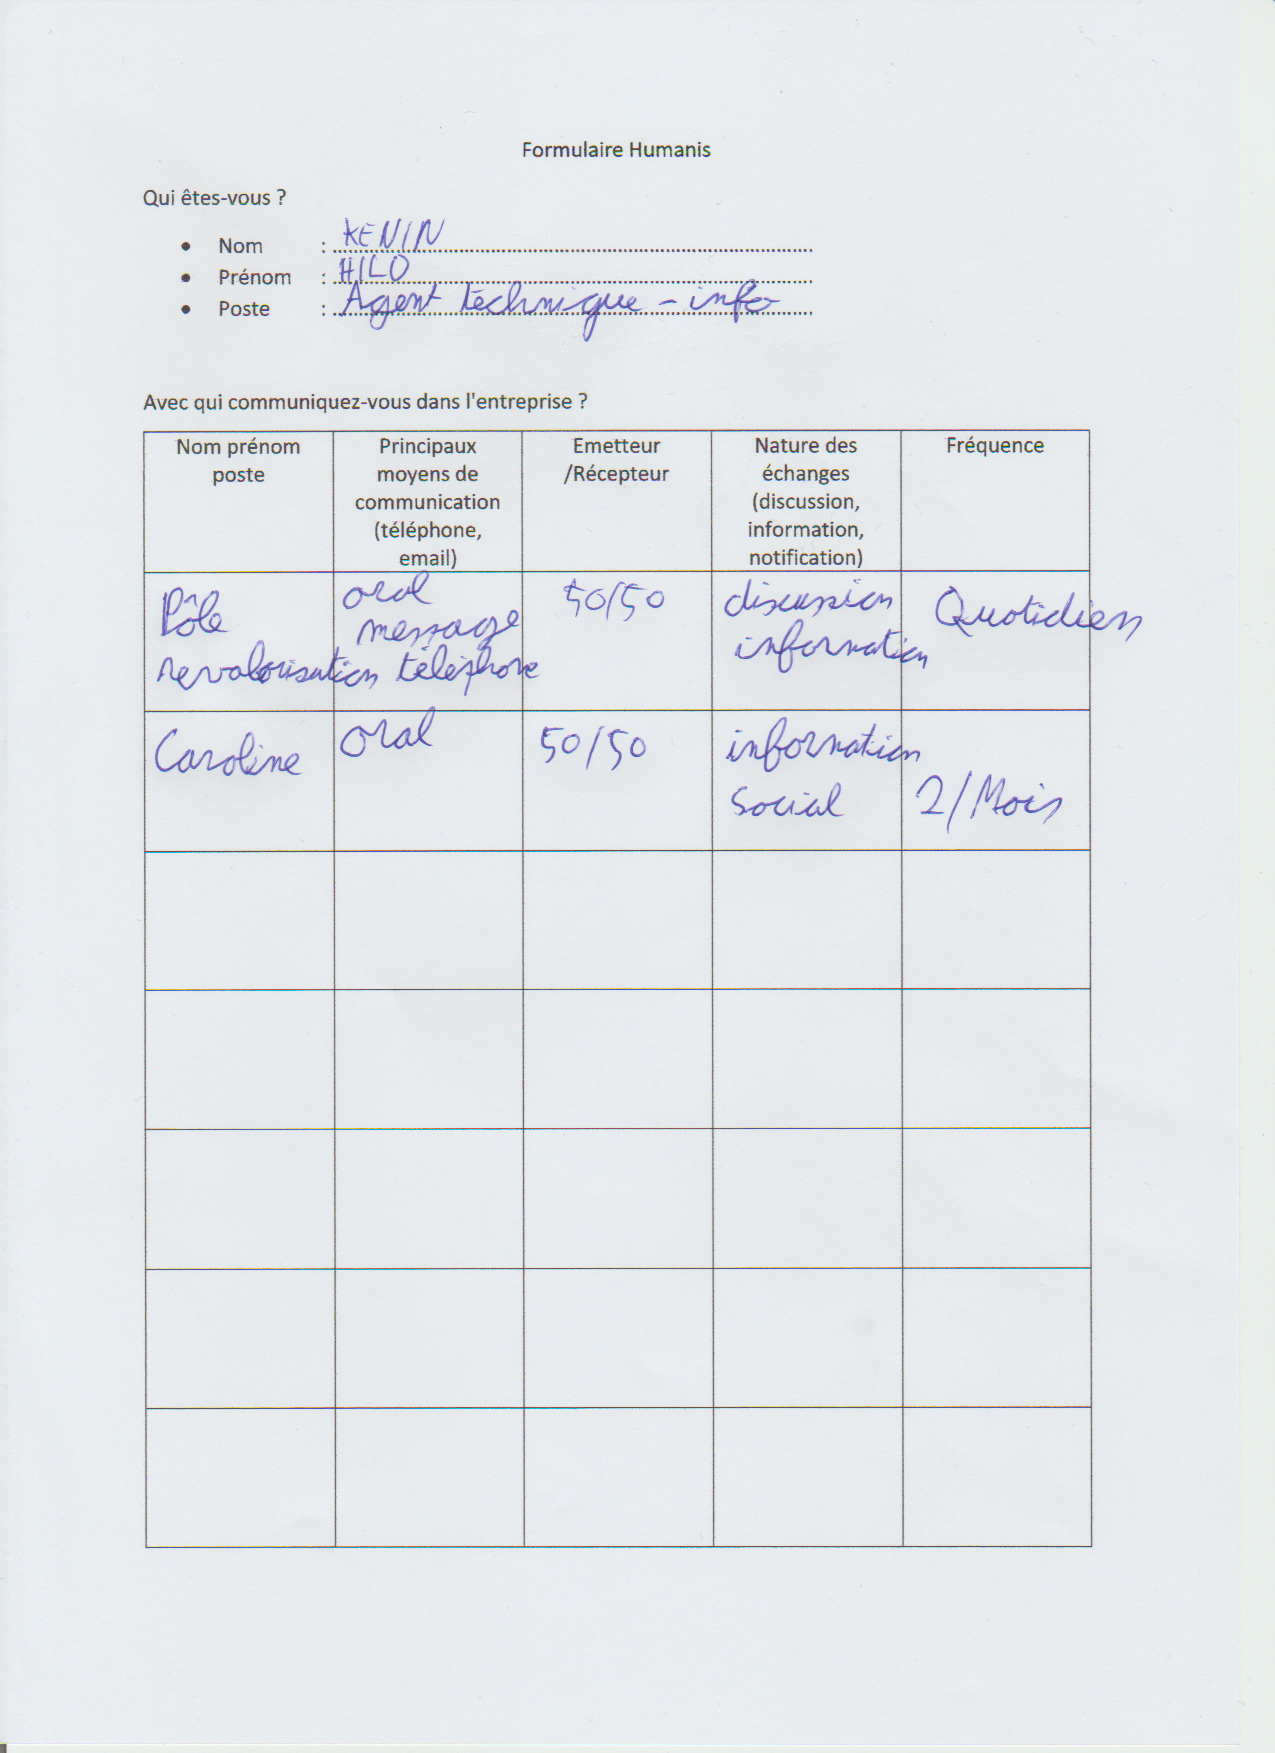 Formulaire Humanis
Qui êtes-vous ?
• Nom : KENIN
• Prénom : HILO
• Poste : Agent technique - info
Avec qui communiquez-vous dans l'entreprise ?
Nom prénom
poste
Principaux
moyens de
communication
(téléphone,
email)
Emetteur
/Récepteur
Nature des
échanges
(discussion,
information,
notification)
Fréquence
Pôle
revalorisation
oral
message
téléphone
50/50
discussion
information
Quotidien
Caroline
oral
50/50
information
social
2/Mois